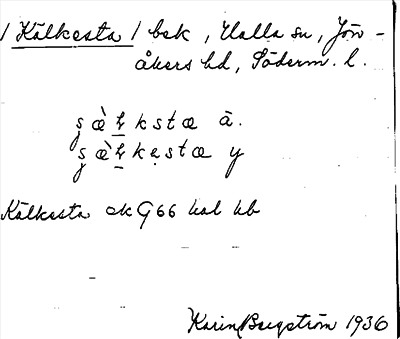 / Kälkesta / bsk, Halla sn, Jön-
åkers hd, Söderm. l.
kstæ ä.
kestæ y
Kälkesta ek G66 hal hb
Karin Bergström 1936